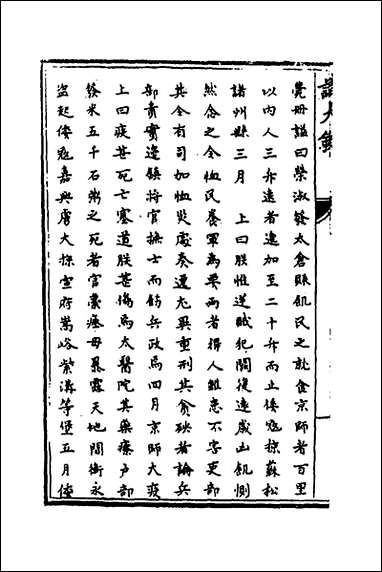 薨册謚曰榮淑發太倉賑飢民之就食京師者百里
以內人三斗遠者遞加至二十斗而止倭寇掠蘇松
諸州縣三月　上曰朕惟逆賊犯關後遠歲凶飢惻
然念之全恤民養軍為要而者得人雖患不害吏部
其令有司加恤災處奏遭尤異重刑其貪殃者論兵
部責實邊鎮將官撫士而飭兵政焉四月京師大疫
上曰疫甚死亡塞道朕甚傷焉太醫院其藥療戶部
發米五千石粥之死者官槖瘞毋暴露天地間衛永
盗起倭寇嘉興虜大掠宣府嵩峪紫溝等堡五月倭